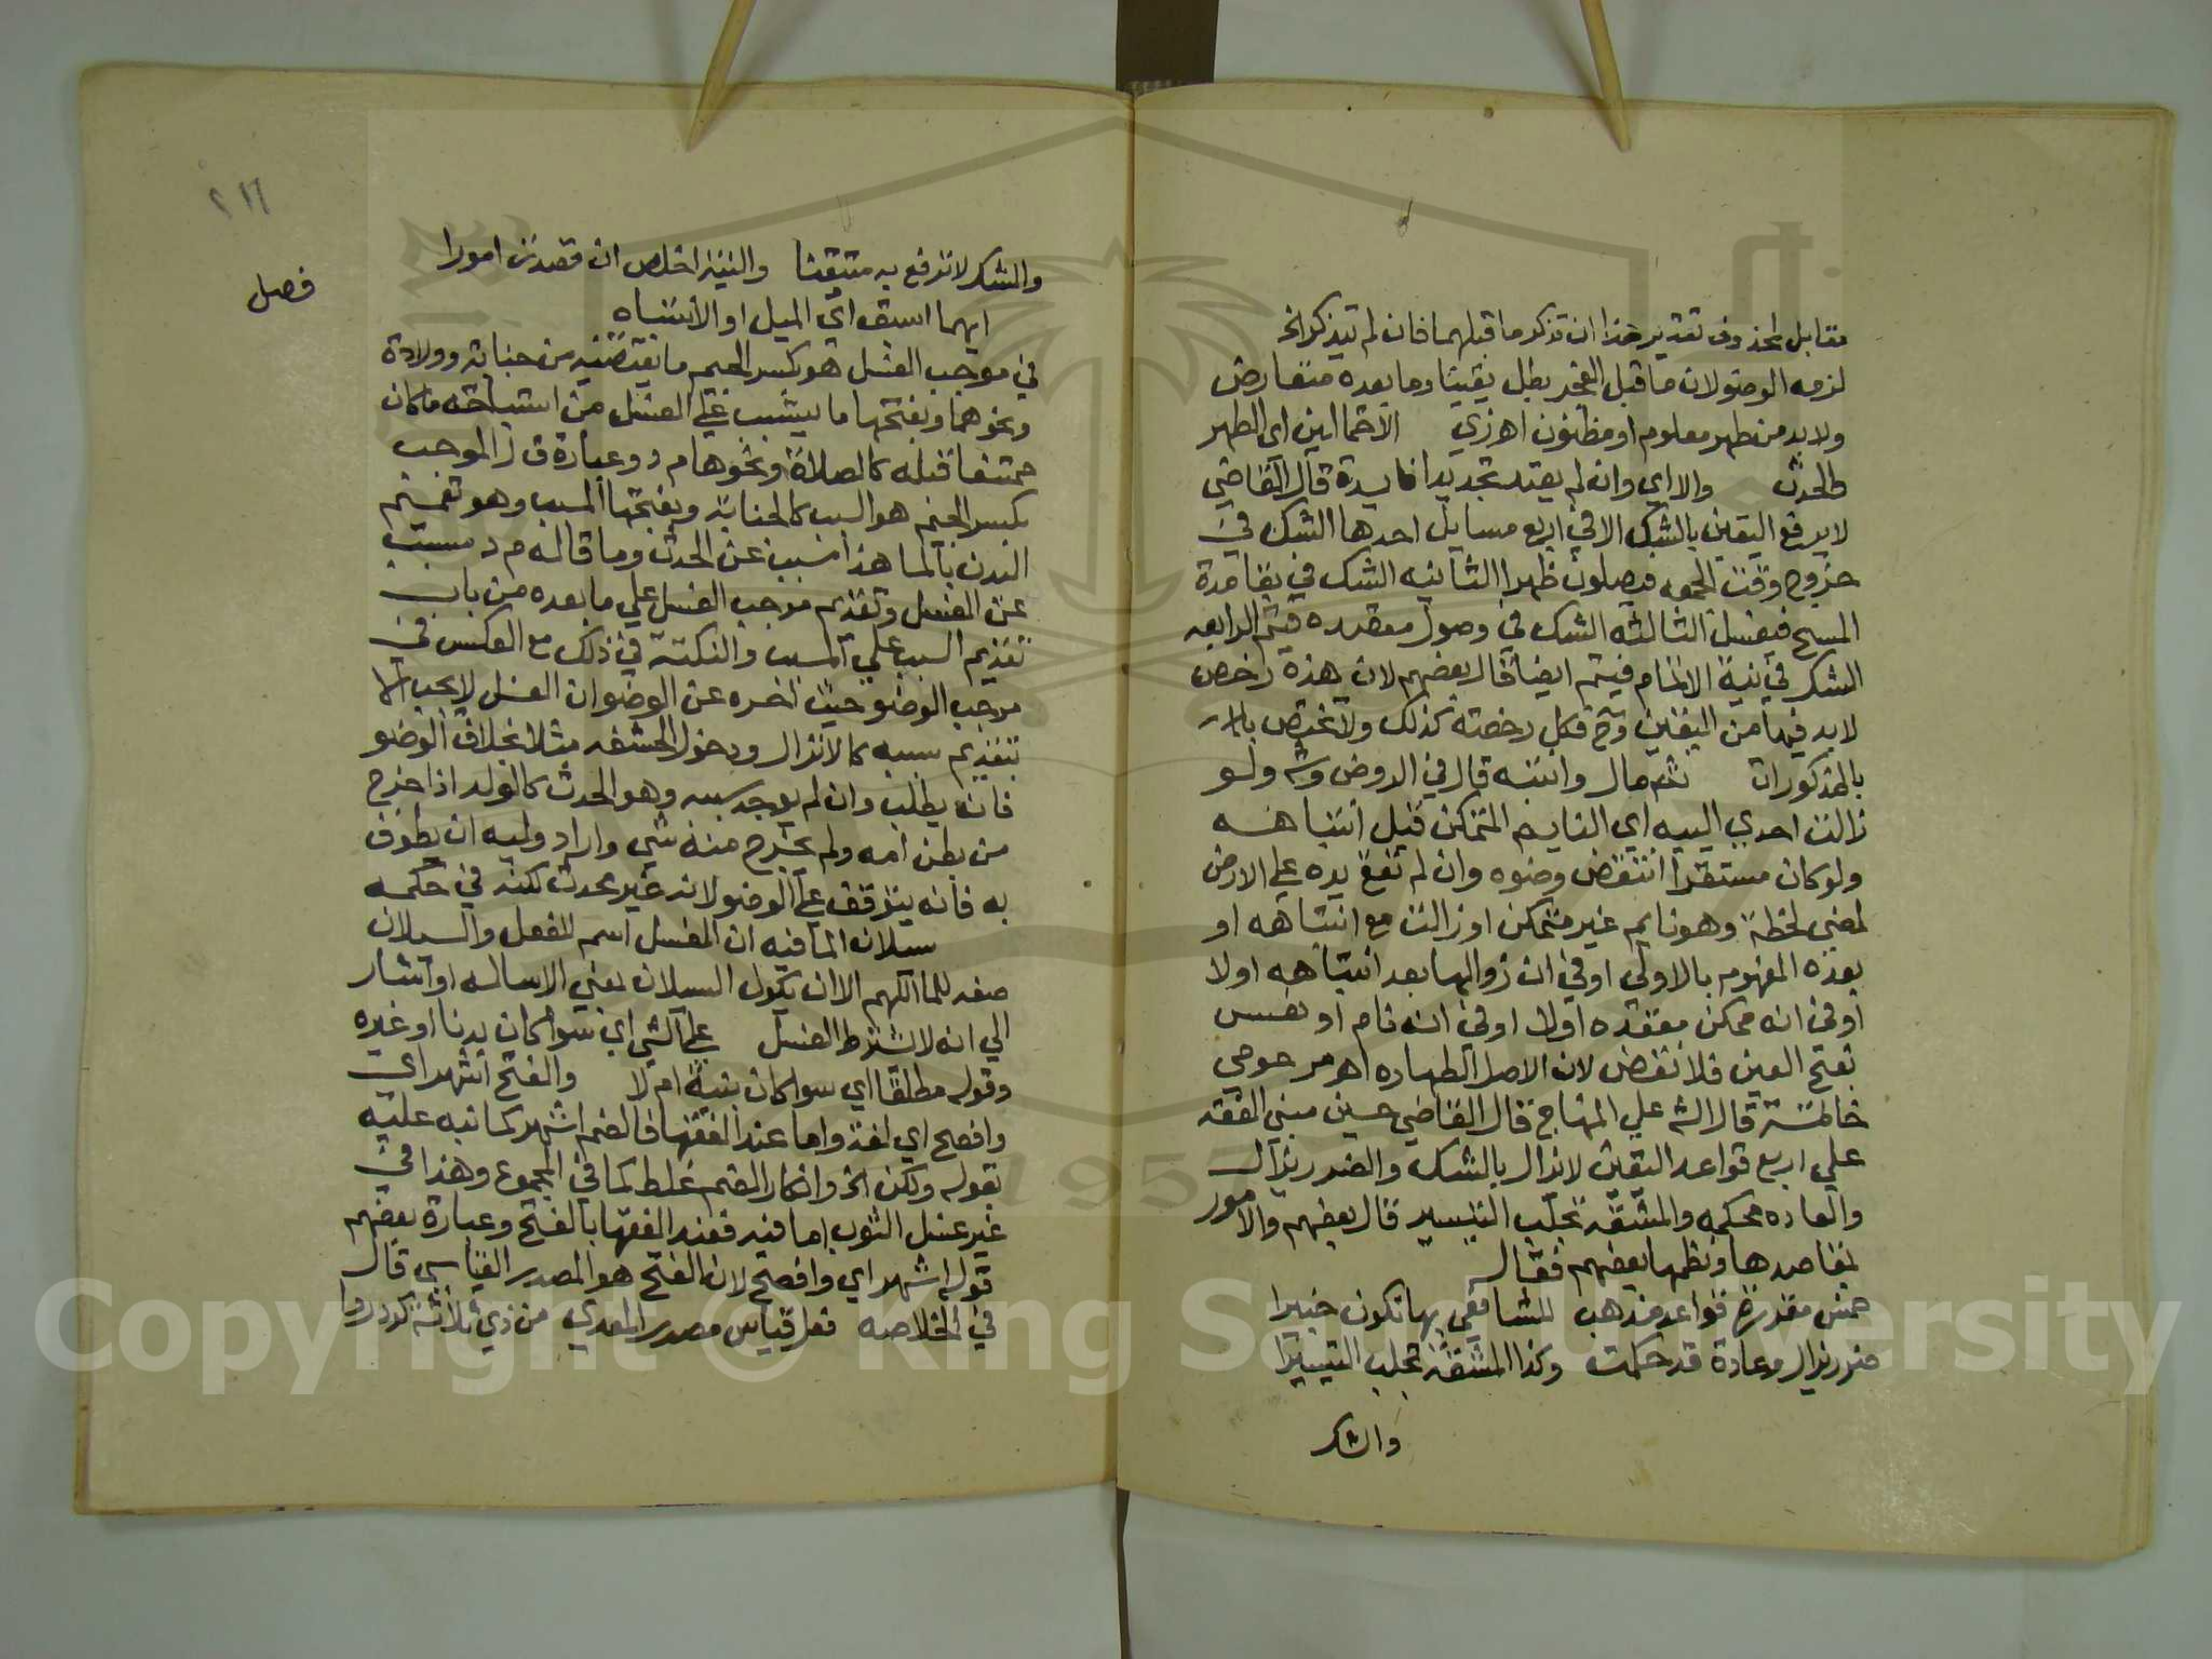 مقابل لمحذوف تقديره هذا ان تذكر ما قبلهما فان لم يتذكر الخ
لزمه الوضو لان ما قبل الفجر بطل يقينا وما بعده متعارض
ولا بد من طهر معلوم او مظنون اهزي الاحتمالين اي الطهر
والحدث والا اي وان لم يعتد تجديدا فايدة قال القاضي
لا يرفع اليقين بالشك الا في اربع مسايل احدها الشك في
خروج وقت الجمعه فيصلون ظهرا الثانيه الشك في بقا مدة
المسح فيغسل الثالثه الشك في وصول مقصده فيتم الرابعه
الشك في نية الاتمام فيتم ايضا قال بعضهم لان هذه رخص
لا بد فيها من اليقين وح فكل رخصته كذلك ولا تختص
بالمذكورات ثم مال وانتبه قال في الروض وشه ولو
زالت احدي الييه اي النايم المتمكن قبل انتباهه
ولو كان مستقرا انتقض وضوه وان لم تقع يده علي الارض
لمضي لحظة وهو نايم غير متمكن او زالت مع انتباهه او
بعده المفهوم بالاولي او في ان زوالها بعد انتباهه اولا
او في انه ممكن مقعده اولا او في انه نام او نعس
بفتح العين فلا نقض لان الاصل الطهاره اه مرحومي
خاتمة قال الشه علي المنهاج قال القاضي حسين مبني الفقه
علي اربع قواعد اليقين لا يزال بالشك والضرر يزال
والعاده محكمه والمشقه تجلب التيسير قال بعضهم والامور
بمقاصدها ونظمها بعضهم فقال
خمس مقررة قواعد مذهب للشافعي بها تكون خبيرا
ضرر يزال وعادة قد حكمت وكذا المشقة تجلب التيسيرا
والشك
٢١٦
والشك لا ترفع به متيقنا والنية اخلص ان قصدت امورا
ايهما اسبق اي الميل او الانتباه
فصل
في موجب الغسل هو كسر الجيم ما يقتضيه من جنابة وولادة
ونحوهما وبفتحها ما يتسبب علي الغسل من استباحته ما كان
ممتنعا قبله كالصلاة ونحوها م د وعبارة ق ل الموجب
بكسر الجيم هو السبب كالجنابة وبفتحها المسبب وهو تعميم
البدن بالما هذا مسبب عن الحدث وما قاله م د مسبب
عن الغسل وتقديم موجب الغسل علي ما بعده من باب
تقديم السبب علي المسبب والنكتة في ذلك مع العكس في
موجب الوضو حيث اخره عن الوضو ان الغسل لا يجب الا
بتقديم سببه كالانزال ودخول الحشفه مثلا بخلاف الوضو
فانه يطلب وان لم يوجد سببه وهو الحدث كالولد اذا خرج
من بطن امه ولم يخرج منه شي واراد وليه ان يطوف
به فانه يتوقف علي الوضو لانه غير محدث لكنه في حكمه
سيلان الما فيه ان الغسل اسم للفعل والسيلان
صفه للما اللهم الا ان يكون السيلان بمعني الاساله او اشار
الي انه لا يشترط الفعل علي الشي اي سوا كان بدنا او غيره
وقوله مطلقا اي سوا كان بنية ام لا والفتح اشهر اي
وافصح اي لغة واما عند الفقها فالضم اشهر كما نبه عليه
بقوله ولكن الخ وانكار الضم غلط كما في المجموع وهذا في
غير غسل الثوب اما فيه فعند الفقها بالفتح وعبارة بعضهم
قوله اشهر اي وافصح لان الفتح هو المصدر القياسي قال
في الخلاصه فعل قياس مصدر المعدي من ذي ثلاثة كرد ردا